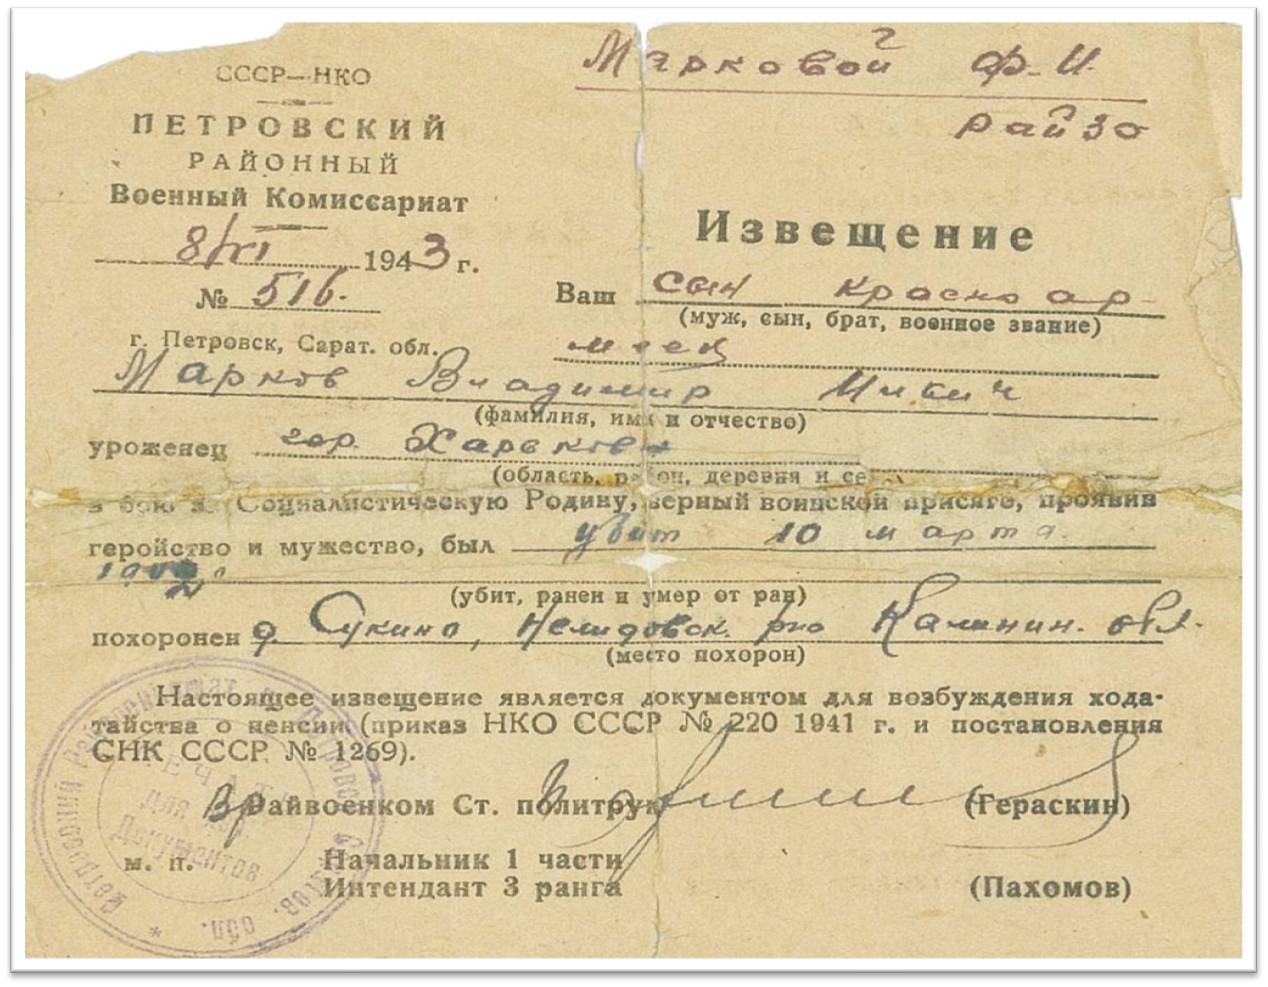 СССР—НКО
ПЕТРОВСКИЙ
РАЙОННЫЙ
Военный Комиссариат
8/XI 1943 г.
№ 516.
г. Петровск, Сарат. обл.
Марковой Ф. И.
райзо
Извещение
Ваш сын красноар-
(муж, сын, брат, военное звание)
меец
Марков Владимир
(фамилия, имя и отчество)
уроженец гор. Харькова
(область, район, деревня и се
в бою за Социалистическую Родину, верный воинской присяге, проявив
геройство и мужество, был убит 10 марта
(убит, ранен и умер от ран)
похоронен д. Сукино, Нелидовск. р-но Калинин. обл.
(место похорон)
Настоящее извещение является документом для возбуждения хода-
тайства о пенсии (приказ НКО СССР № 220 1941 г. и постановления
СНК СССР № 1269).
Вр Райвоенком Ст. политрук (Гераскин)
м. п. Начальник 1 части
Интендант 3 ранга (Пахомов)
Печать
для
Документов